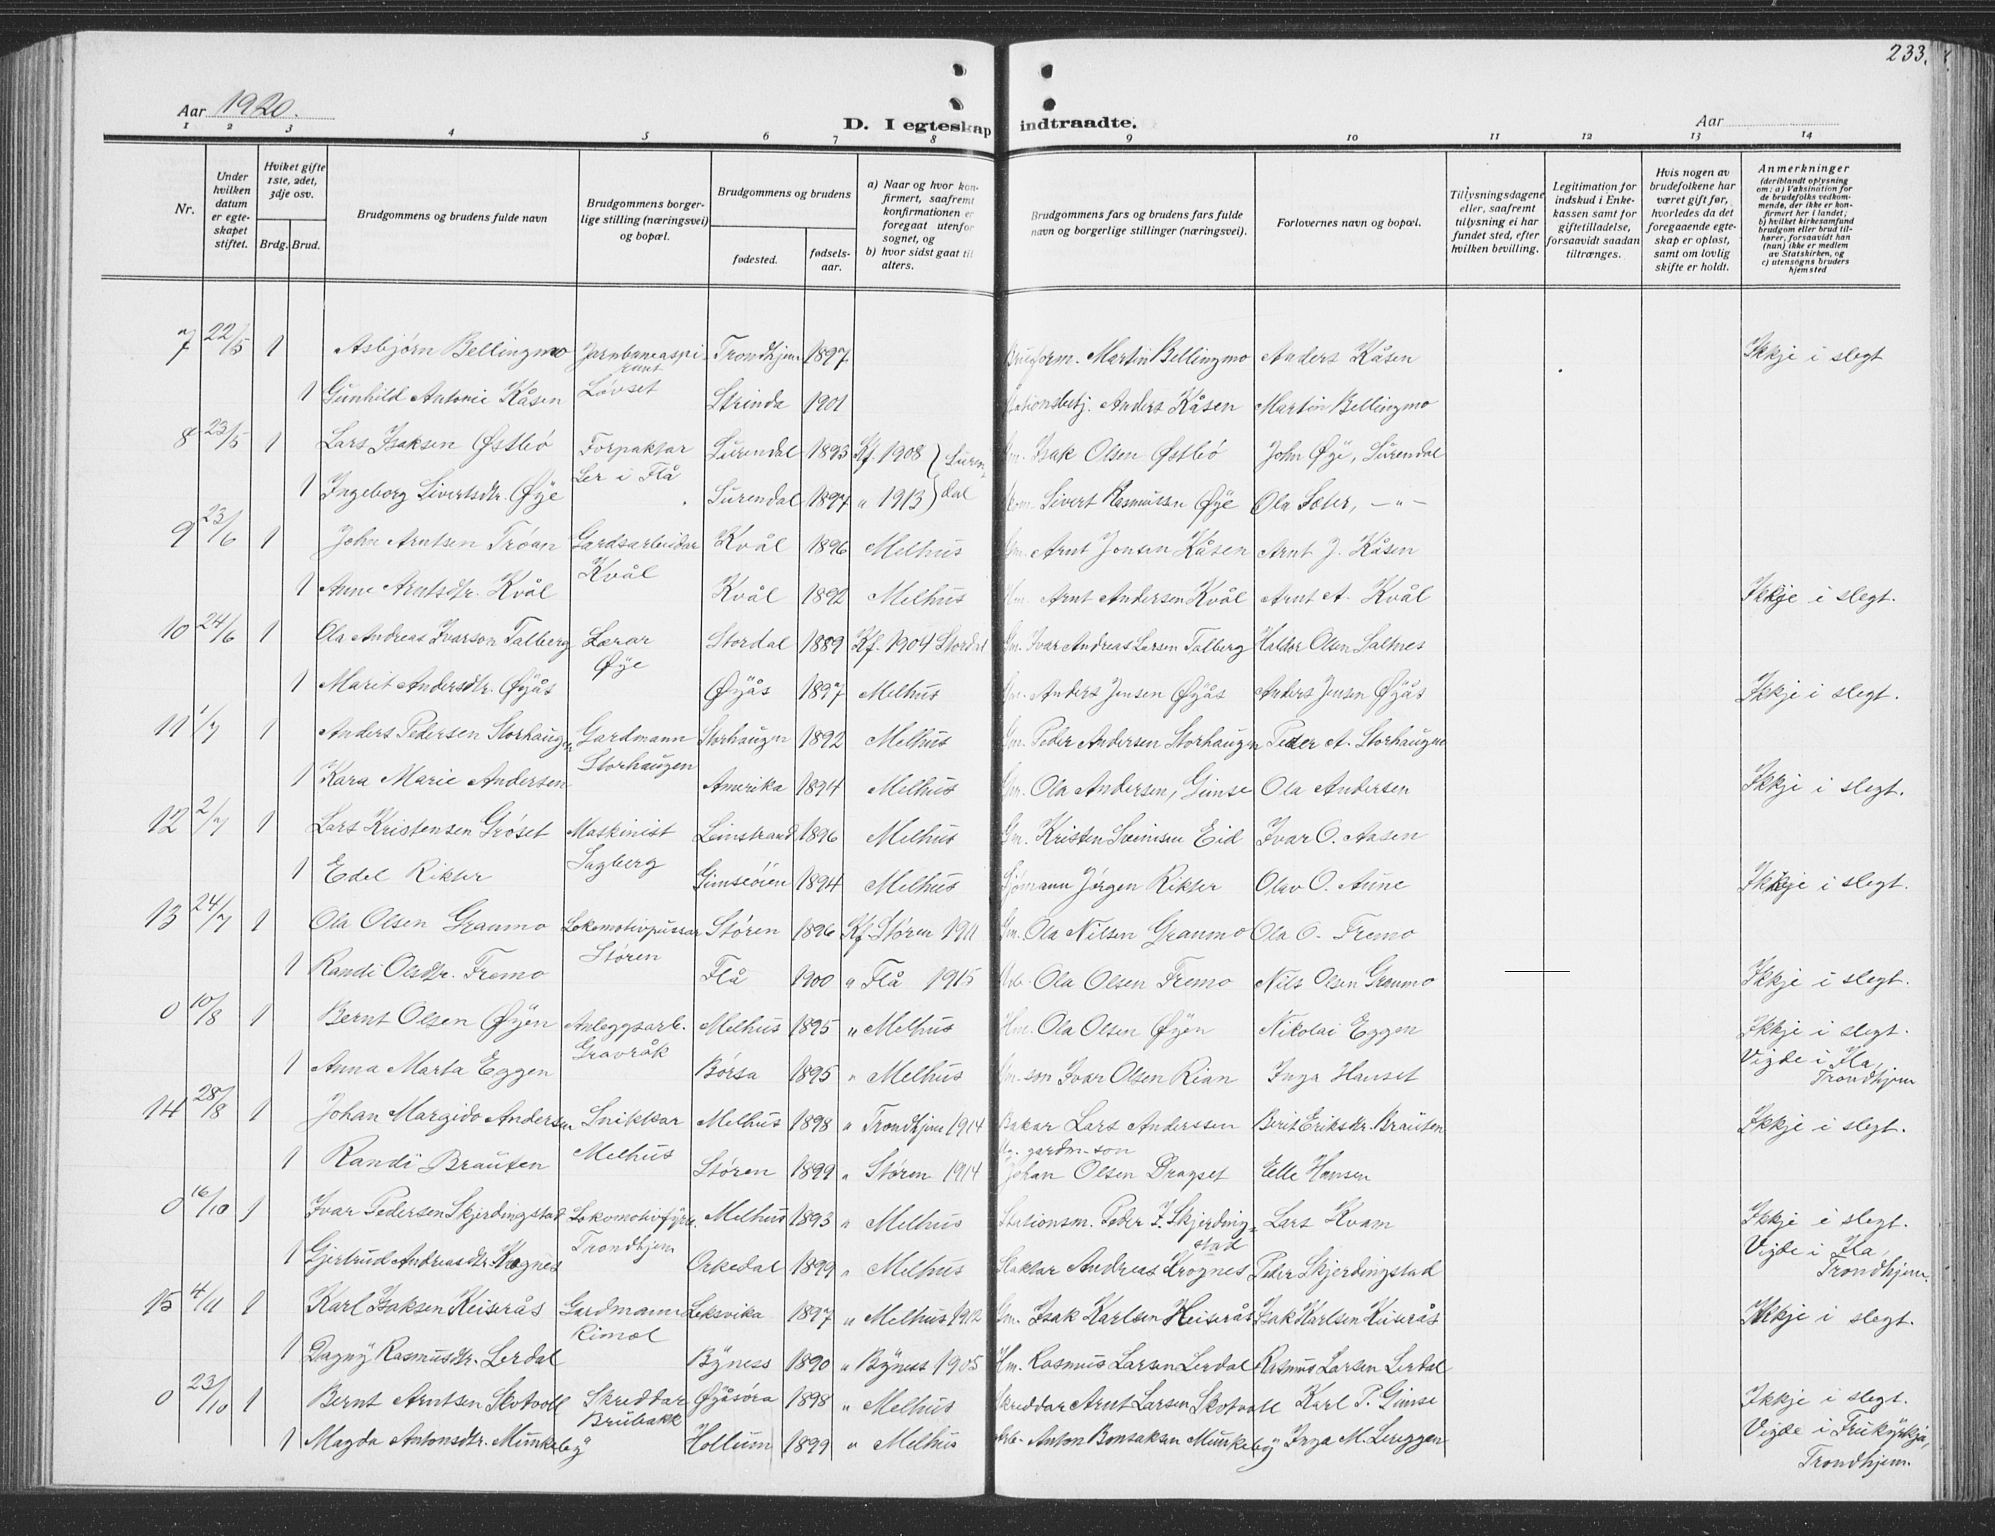 233.
Aar 1920.
D. I egteskap indtraadte.
Aar
1 2 3 4 5 6 7 8 9 10 11 12 13 14
Nr.
Under hvilken datum er egteskapet stiftet.
Hviket gifte 1ste, 2det, 3dje osv.
Brdg. Brud.
Brudgommens og brudens fulde navn
Brudgommens borgerlige stilling (næringsvei) og bopæl.
Brudgommens og brudens
fødested. fødselsaar.
a) Naar og hvor konfirmert, saafremt konfirmationen er foregaat utenfor sognet, og
b) hvor sidst gaat til alters.
Brudgommens fars og brudens fars fulde navn og borgerlige stillinger (næringsvei).
Forlovernes navn og bopæl.
Tillysningsdagene eller, saafremt tillysning ei har fundet sted, efter hvilken bevilling.
Legitimation for indskud i Enkekassen samt for giftetilladelse, forsaavidt saadan tiltrænges.
Hvis nogen av brudefolkene har været gift før, hvorledes da det foregaaende egteskap er opløst, samt om lovlig skifte er holdt.
Anmerkninger
(deriblandt oplysning om: a) Vaksination for de brudefolks vedkommende, der ikke er konfirmert her i landet; b) hvilket kirkesamfund brudgom eller brud tilhører, forsaavidt han (hun) ikke er medlem av Statskirken, og c) utensogns bruders hjemsted
7 22/5 1 Asbjørn Bellingmo Jarnbaneaspirant Trondhjem 1897 Martin Bellingmo Anders Kåsen Ikkje i slegt
1 Gunhild Antonie Kåsen Løvset Strinda 1901 Stationsbetj. Anders Kåsen Martin Bellingmo
8 23/5 1 Lars Isaksen Østbö Forpaktar Surendal 1893 Kf. 1908 } Suren Gm. Isak Olsen Østbö John Øye, Surendal
1 Ingeborg Sivertsdtr. Øye Ler i Flå Surendal 1897 " 1913 } dal Sivert Rasmussen Øye Ola Sæter, —"—
9 23/6 1 John Arntsen Trøan Gardsarbeidar Kvål 1896 Melhus Gm. Arnt Jonsen Kåsen Arnt J. Kåsen
1 Anne Arntsdtr. Kvål Kvål Kvål 1892 Melhus Hm. Arnt Andersen Kvål Arnt A. Kvål Ikkje i slegt.
10 24/6 1 Ola Andreas Ivarson Talberg Lærar Stordal 1889 Kf. 1904 Stordal Gm. Ivar Andreas Larsen Talberg Haldor Olsen Saltnes
1 Marit Andersdtr. Øyås Øye Øyås 1897 Melhus Gm. Anders Jensen Øyås Anders Jensen Øyås Ikkje i slegt.
11 1/7 1 Anders Pedersen Storhaugen Gardmann Storhaugen 1892 Melhus Gm. Peder Andersen Storhaugen Peder A. Storhaugen
1 Kara Marie Andersen Storhaugen Amerika 1894 Melhus Gm. Ola Andersen, Gimse Ola Andersen Ikkje i slegt.
12 2/7 1 Lars Kristensen Grøset Maskinist Leinstrand 1896 Melhus Gm. Kristen Eid Ivar O. Aasen
1 Edel Rikter Sagberg Gimseøien 1894 Melhus Sjømann Jørgen Rikter Olav O. Aune Ikkje i slegt.
13 24/7 1 Ola Olsen Graumo Lokomotivpussar Støren 1896 Kf Støren 1911 Gm. Ola Nilsen Graumo Ola O. Fremo
1 Randi Olsdtr. Fremo Støren Flå 1900 " Flå 1915 Arb. Ola Olsen Fremo Nils Olsen Graumo Ikkje i slegt.
0 10/8 1 Bernt Olsen Øyen Anleggsarb. Melhus 1895 " Melhus Hm. Ola Olsen Øyen Nikolai Eggen Ikkje i slegt.
1 Anna Marta Eggen Gravråk Børsa 1895 " Melhus Gm-son Ivar Olsen Rian Inga Hanset Vigde i Ila, Trondhjem
14 28/8 1 Johan Margido Andersen Snikkar Melhus 1898 " Trondhjem 1914 Bakar Lars Anderssen Berit Eriksdtr. Brauten Ikkje i slegt.
1 Randi Brauten Melhus Støren 1899 " Støren 1914 gardm-son Johan Olsen Dragset Elle Hansen
0 16/10 1 Ivar Pedersen Skjerdingstad Lokomotivfyrb. Melhus 1893 " Melhus Stationsm. Peder I. Skjerdingstad Lars Kvam Ikkje i slegt.
1 Gjertrud Andreasdtr Krognes Trondhjem Orkedal 1899 " Melhus Slaktar Andreas Krognes Peder Skjerdingstad Vigde i Ila, Trondhjem.
15 4/11 1 Karl Isaksen Keiserås Gardmann Leksvika 1897 " Melhus 1912 Gm. Isak Karlsen Keiserås Isak Karlsen Keiserås Ikkje i slegt.
1 Dagny Rasmusdtr. Lerdal Rimol Byness 1890 " Byness 1905 Hm. Rasmus Larsen Lerdal Rasmus Larsen Lerdal
0 23/10 1 Bernt Arntsen Skotvoll Skreddar Øyåsøra 1898 " Melhus Skreddar Arnt Larsen Skotvoll Karl P. Gimse Ikkje i slegt.
1 Magda Antonsdtr. Munkeby Brubakk Hollum 1899 " Melhus Arb- Anton Bonsaksen Munkeby Inga M. Lereggen Vigde i Trondhjem.